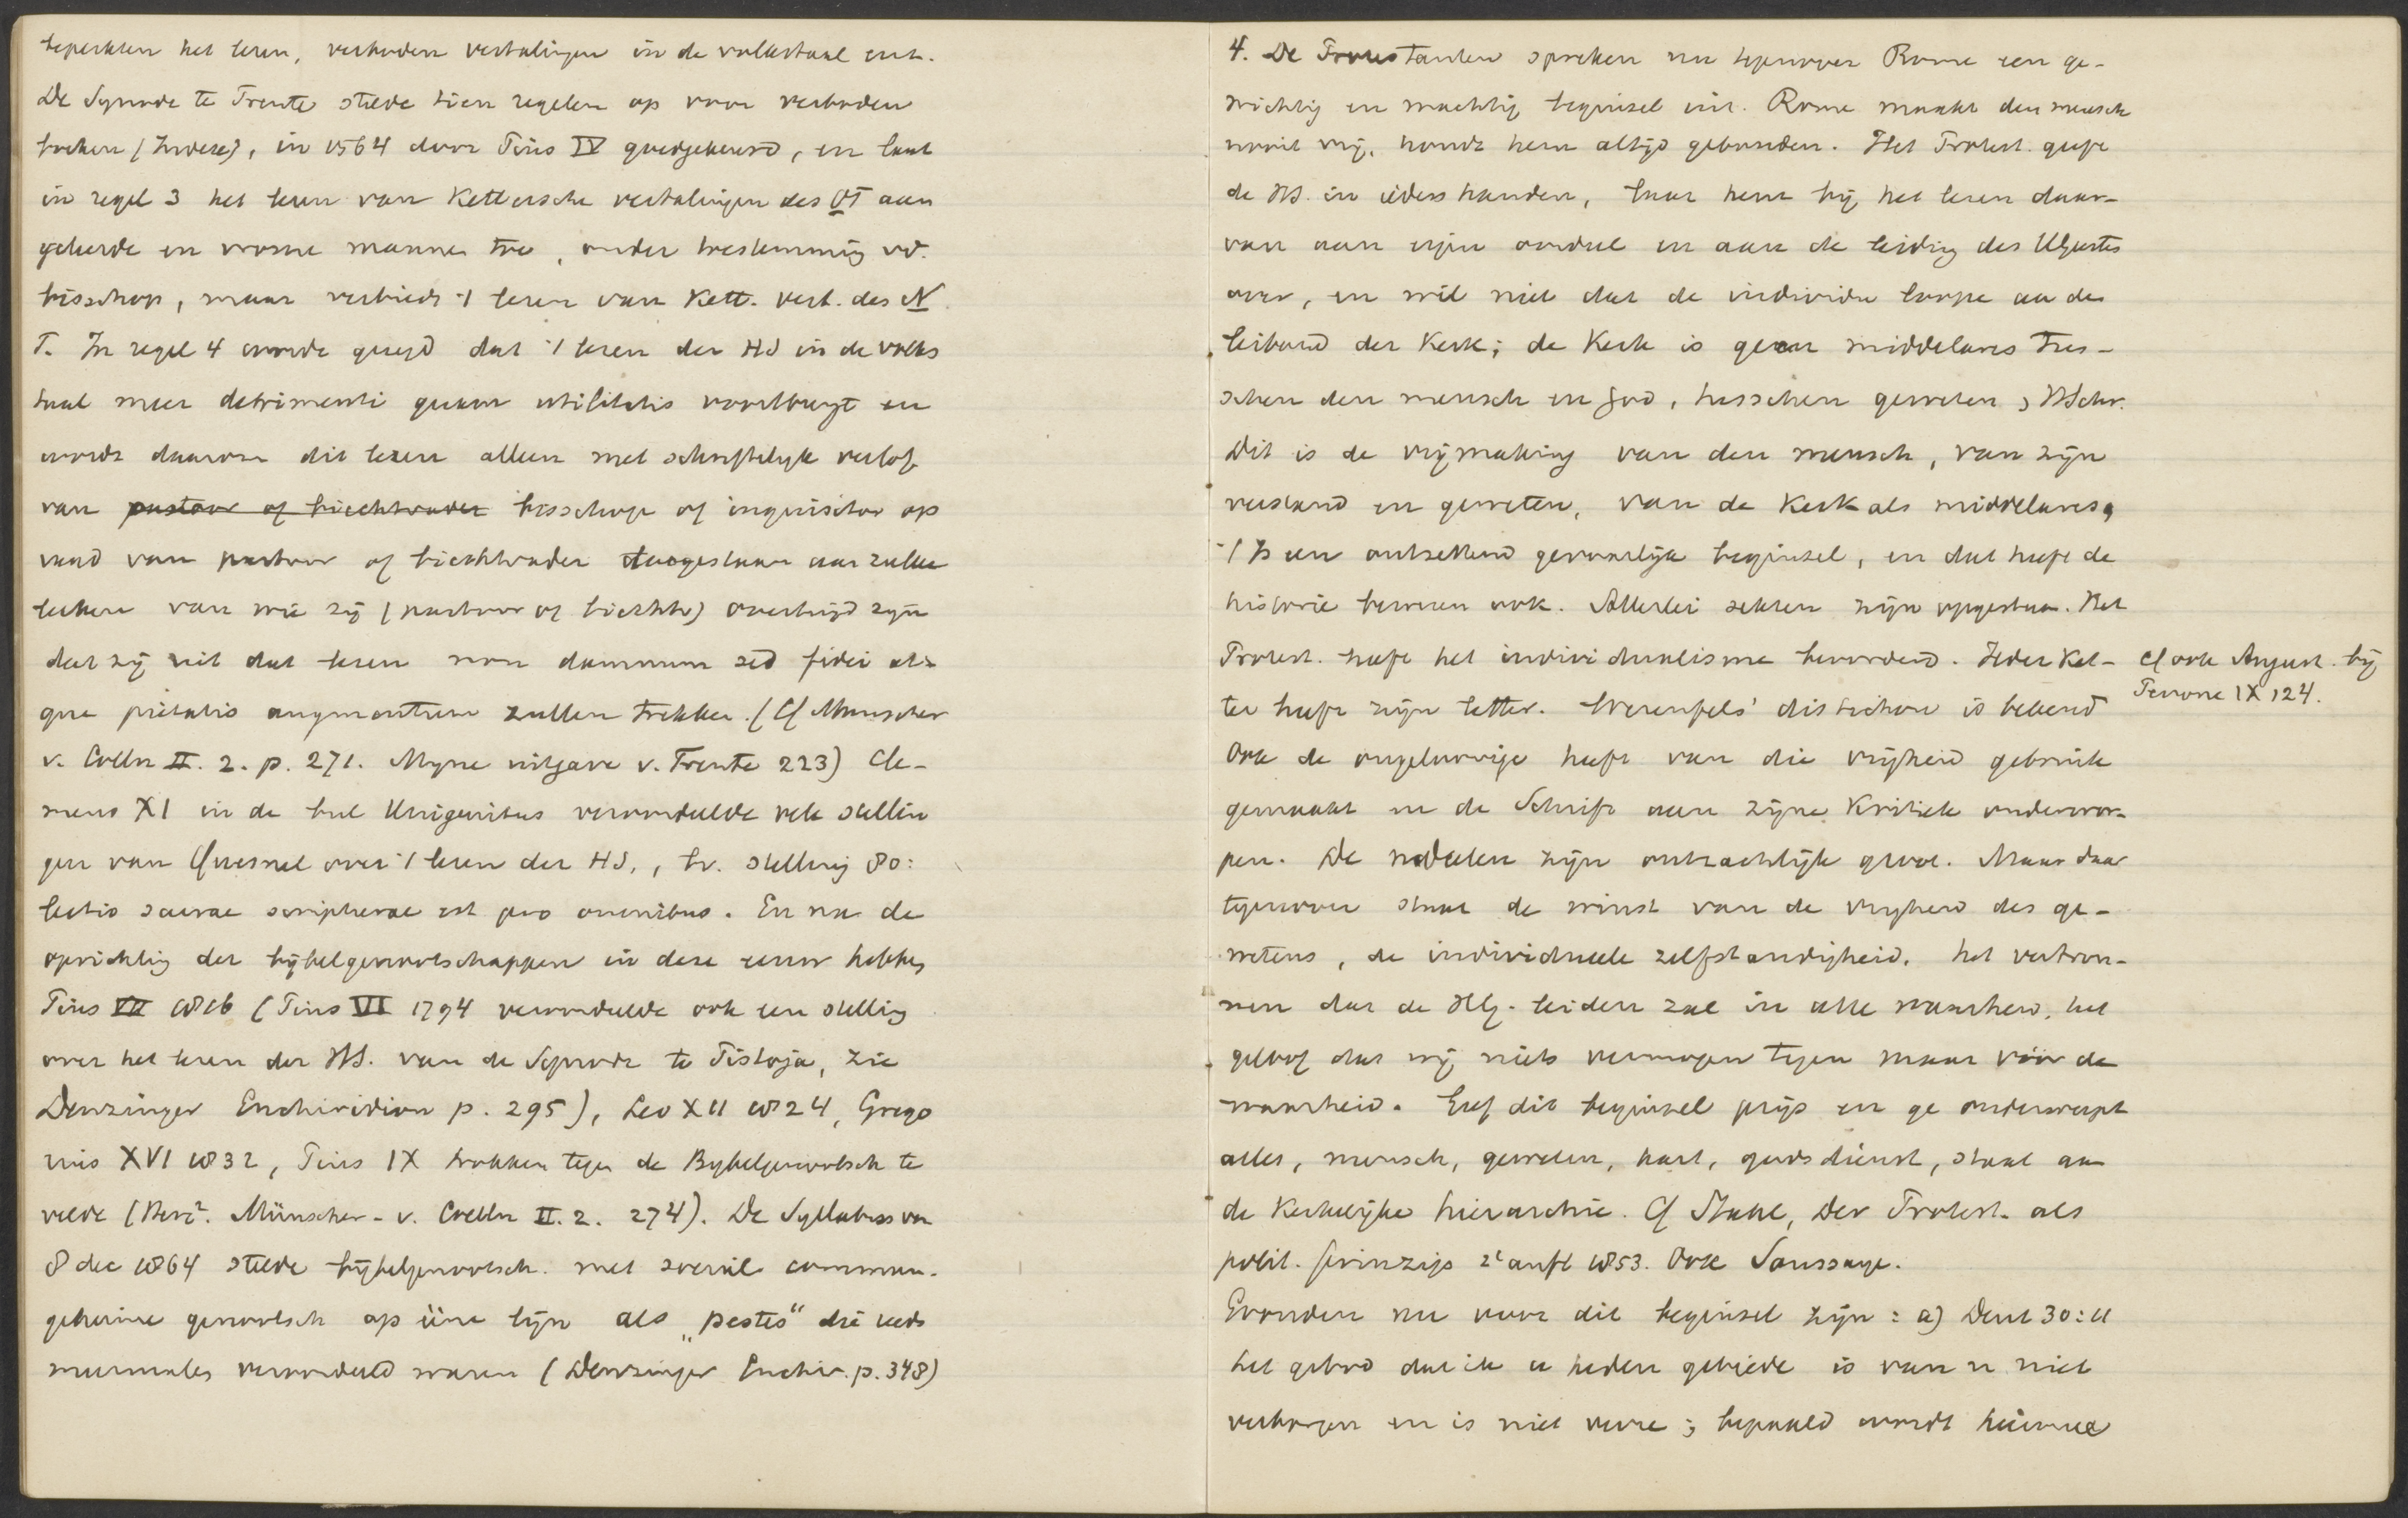 beperkten het lezen, verboden vertalingen in de volkstaal enz.
De Synode te Trente stelde tien regelen op voor verboden
boeken (Indices), in 1564 door Pius IV goedgekeurd, en laat
in regel 3 het lezen van Kettersche vertalingen des OT aan
geleerde en vrome mannen toe, onder toestemming vd.
bisschop, maar verbiedt 't lezen van Kett. vert. des N
T. In regel 4 wordt gezegd dat 't lezen der HS in de volks
taal meer detrimenti quam utilitatis voortbrengt en
wordt daarom dit lezen alleen met schriftelijk verlof
van pastoor of biechtvader bisschop of inquisitor op
raad van pastoor of biechtvader toegestaan aan zulke
leeken van wie zij (pastoor of biechtv) overtuigd zijn
dat zij uit dat lezen non damnum sed fidei at-
que pietatis augmentum zullen trekken. (Cf Munscher
v. Coelln II. 2. p. 271. Mijne uitgave v. Trente 223) Cle-
mens XI in de bul Unigenitus veroordeelde vele stellin
gen van Quesnel over 't lezen der HS., bv. stelling 80:
lectio sacrae scripturae est pro omnibus. En na de
oprichting der bijbelgenootschappen in deze eeuw hebben
Pius VII 1816 (Pius VI 1794 veroordeelde ook een stelling
over het lezen der HS. van de Synode te Pistoja, zie
Denzinger Enchiridion p. 295), Leo XII 1824, Grego
rius XVI 1832, Pius IX trokken tegen de Bybelgenootsch te
velde (Münscher - v. Coelln II. 2. 274). De Syllabus van
8 dec 1864 stelde bijbelgenootsch. met social. commun.
geheime genootsch op ééne lijn als „pestes“ die reeds
meermalen veroordeeld waren (Denzinger Enchir. p. 348)
4. De Protestanten spreken nu tegenover Rome een ge-
wichtig en machtig beginsel uit. Rome maakt den mensch
nooit vrij, houdt hem altijd gebonden. Het Protest. geeft
de HS. in ieders handen, laat hem bij het lezen daar-
van aan eigen oordeel en aan de leiding des HGeestes
over, en wil niet dat de individu loope aan de
leiband der Kerk; de Kerk is geen middelares tus-
schen den mensch en God, tusschen geweten & HSchr.
Dit is de vrijmaking van den mensch, van zijn
verstand en geweten, van de Kerk als middelares,
't Is een ontzettend gevaarlijk beginsel, en dat heeft de
historie bewezen ook. Allerlei sekten zijn opgestaan. Het
Protest. heeft het individualisme bevorderd. Ieder Ket-
ter heeft zijn letter. Werenfels' distichon is bekend
Ook de ongeloovige heeft van die vrijheid gebruik
gemaakt en de Schrift aan zijne Kritiek onderwor-
pen. De nadeelen zijn ontzachlijk groot. Maar daar
tegenover staat de winst van de vrijheid des ge-
wetens, de individueele zelfstandigheid, het vertrou-
wen dat de HG. leiden zal in alle waarheid, het
geloof dat wij niets vermogen tegen maar vóór de
waarheid. Geef dit beginsel prijs en ge onderwerpt
alles, mensch, geweten, hart, godsdienst, staat aan
de Kerkelijke hierarchie. Cf Stahl, Der Protest. als
polit. Prinzip 2e aufl 1853. Ook Saussaye.
Gronden nu voor dit beginsel zijn: a) Deut 30:11
het gebod dat ik u heden gebiede is van u niet
verborgen en is niet verre; bepaald wordt hiermee
Cf ook August. bij
Perrone IX 124.